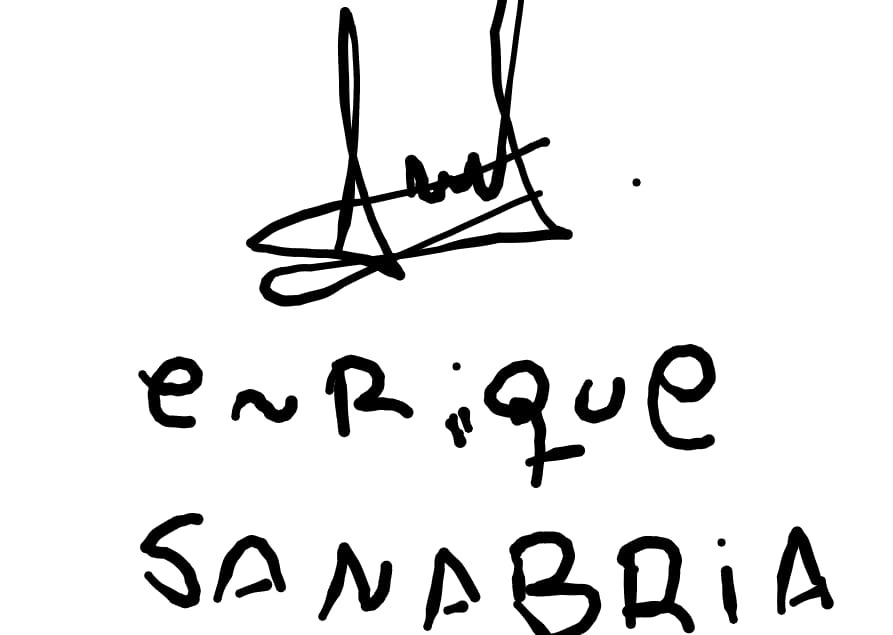 enRique
SANABRiA